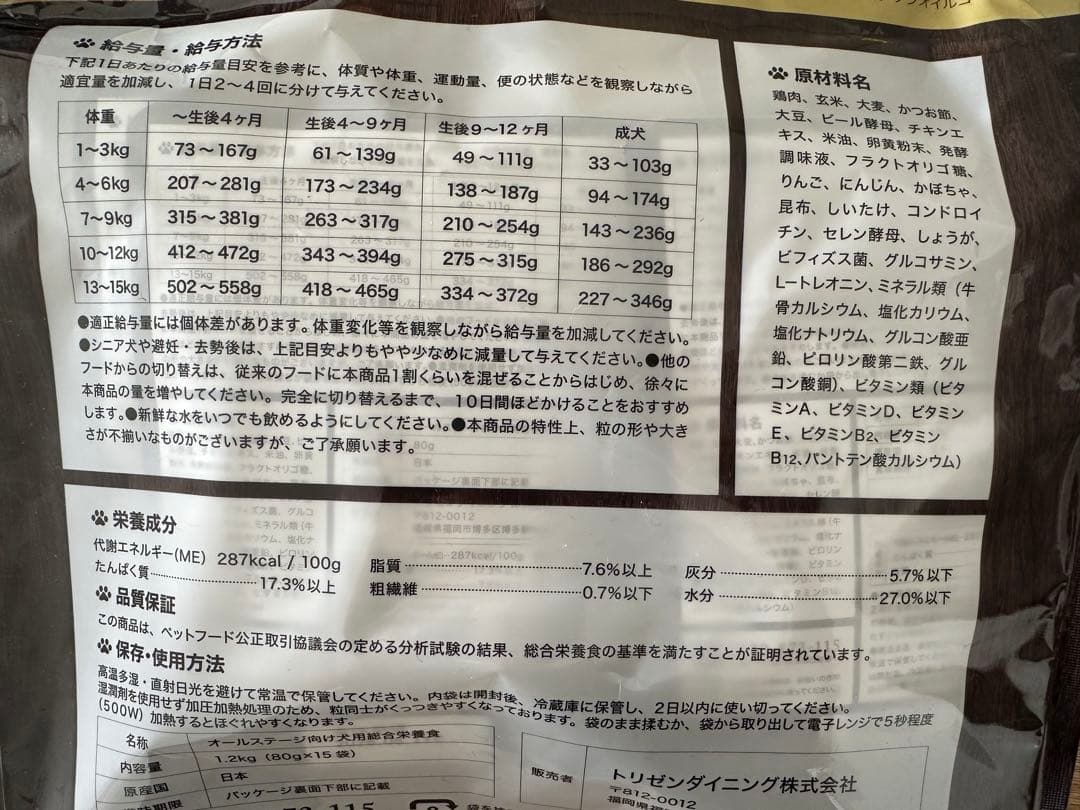 給与量・給与方法
下記1日あたりの給与量目安を参考に、体質や体重、運動量、便の状態などを観察しながら
適宜量を加減し、1日2～4回に分けて与えてください。
体重 ～生後4ヶ月 生後4～9ヶ月 生後9～12ヶ月 成犬
1～3kg 73～167g 61～139g 49～111g 33～103g
4～6kg 207～281g 173～234g 138～187g 94～174g
7～9kg 315～381g 263～317g 210～254g 143～236g
10～12kg 412～472g 343～394g 275～315g 186～292g
13～15kg 502～558g 418～465g 334～372g 227～346g
●適正給与量には個体差があります。体重変化等を観察しながら給与量を加減してください。
●シニア犬や避妊・去勢後は、上記目安よりもやや少なめに減量して与えてください。●他の
フードからの切り替えは、従来のフードに本商品1割くらいを混ぜることからはじめ、徐々に
本商品の量を増やしてください。完全に切り替えるまで、10日間ほどかけることをおすすめ
します。●新鮮な水をいつでも飲めるようにしてください。●本商品の特性上、粒の形や大き
さが不揃いなものがございますが、ご了承願います。
原材料名
鶏肉、玄米、大麦、かつお節、
大豆、ビール酵母、チキンエ
キス、米油、卵黄粉末、発酵
調味液、フラクトオリゴ糖、
りんご、にんじん、かぼちゃ、
昆布、しいたけ、コンドロイ
チン、セレン酵母、しょうが、
ビフィズス菌、グルコサミン、
L-トレオニン、ミネラル類（牛
骨カルシウム、塩化カリウム、
塩化ナトリウム、グルコン酸亜
鉛、ピロリン酸第二鉄、グル
コン酸銅）、ビタミン類（ビタ
ミンA、ビタミンD、ビタミン
E、ビタミンB2、ビタミン
B12、パントテン酸カルシウム）
栄養成分
代謝エネルギー（ME） 287kcal / 100g
たんぱく質 17.3％以上
脂質 7.6％以上
粗繊維 0.7％以下
灰分 5.7％以下
水分 27.0％以下
品質保証
この商品は、ペットフード公正取引協議会の定める分析試験の結果、総合栄養食の基準を満たすことが証明されています。
保存・使用方法
高温多湿・直射日光を避けて常温で保管してください。内袋は開封後、冷蔵庫に保管し、2日以内に使い切ってください。
湿潤剤を使用せず加圧加熱処理のため、粒同士がくっつきやすくなっております。袋のまま揉むか、袋から取り出して電子レンジで5秒程度
（500W）加熱するとほぐれやすくなります。
名称 オールステージ向け犬用総合栄養食
内容量 1.2kg（80g×15袋）
原産国 日本
パッケージ裏面下部に記載
販売者 トリゼンダイニング株式会社
〒812-0012